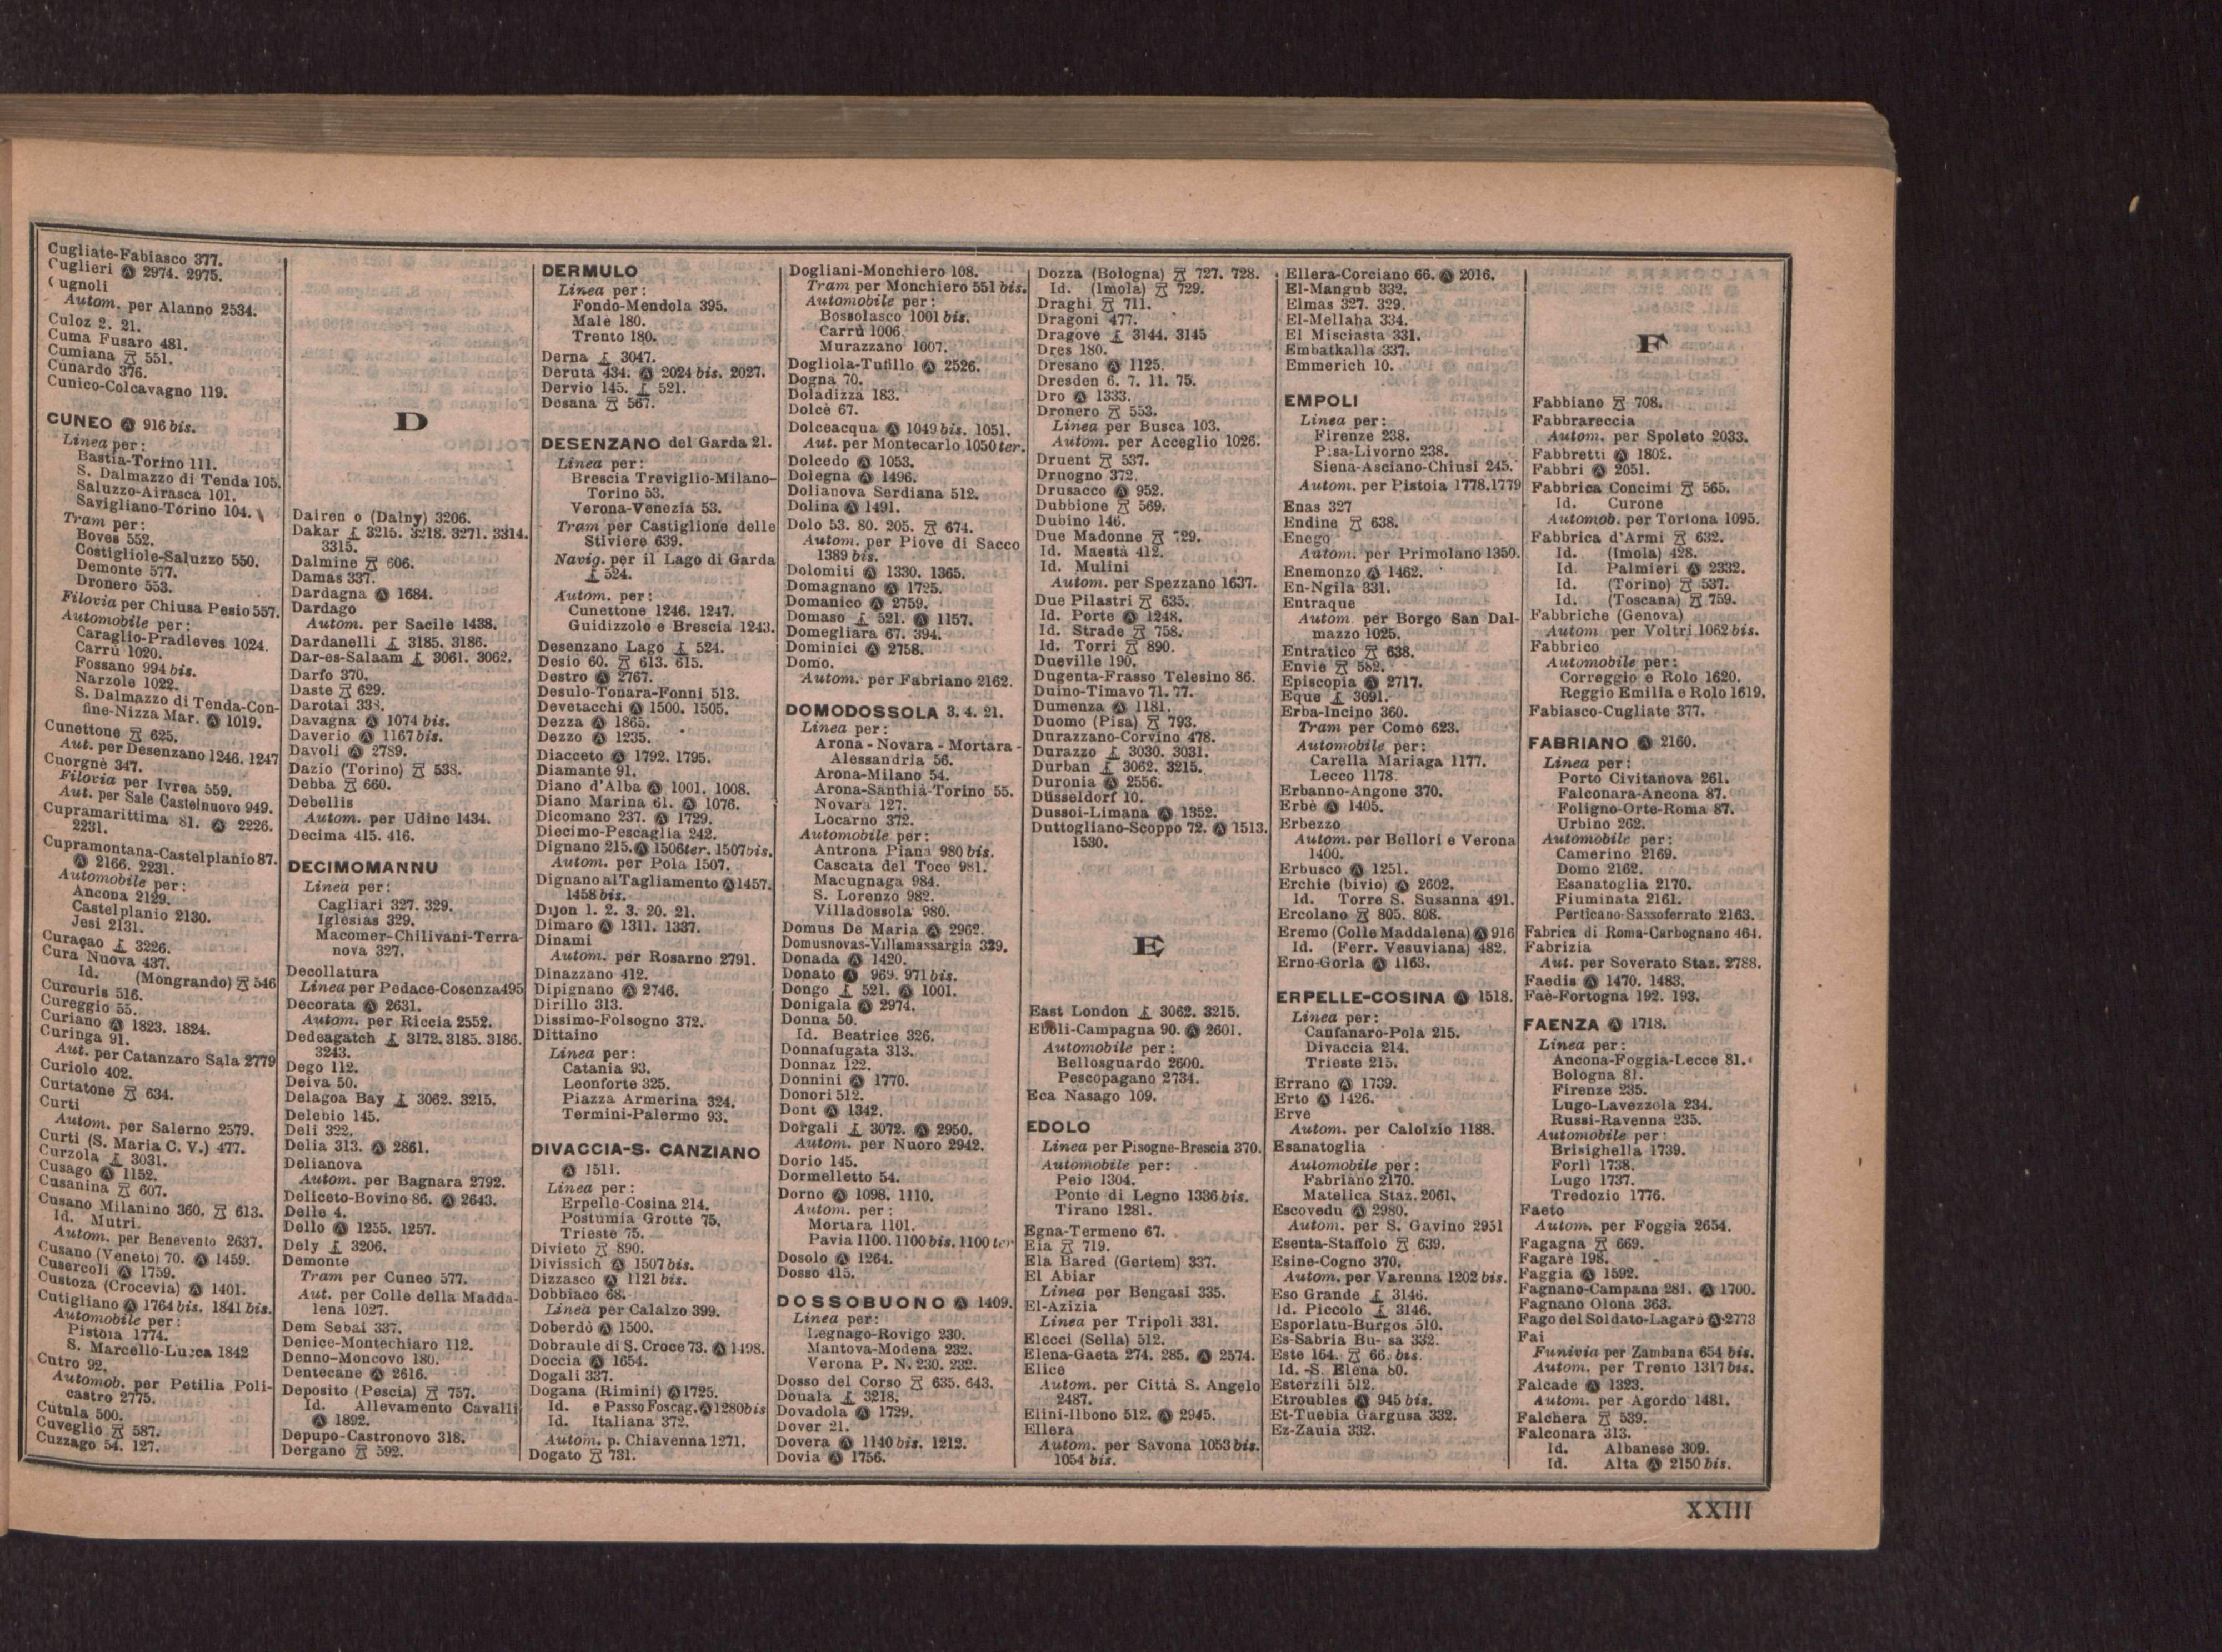 Cugliate-Fabiasco 377.
Cuglieri Ⓐ 2974. 2975.
Cugnoli
Autom. per Alanno 2534.
Culoz 2. 21.
Cuma Fusaro 481.
Cumiana 551.
Cunardo 376.
Cunico-Colcavagno 119.
CUNEO Ⓐ 916 bis.
Linea per:
Bastia-Torino 111.
S. Dalmazzo di Tenda 105.
Saluzzo-Airasca 101.
Savigliano-Torino 104.
Tram per:
Boves 552.
Costigliole-Saluzzo 550.
Demonte 577.
Dronero 553.
Filovia per Chiusa Pesio 557.
Automobile per:
Caraglio-Pradleves 1024.
Carrù 1020.
Fossano 994 bis.
Narzole 1022.
S. Dalmazzo di Tenda-Con-
fine-Nizza Mar. Ⓐ 1019.
Cunettone 625.
Aut. per Desenzano 1246. 1247
Cuorgnè 347.
Filovia per Ivrea 559.
Aut. per Sale Castelnuovo 949.
Cupramarittima 81. Ⓐ 2226.
2231.
Cupramontana-Castelplanio 87.
Ⓐ 2166. 2231.
Automobile per:
Ancona 2129.
Castelplanio 2130.
Jesi 2131.
Curaçao 3226.
Cura Nuova 437.
Id. (Mongrando) 546
Curcuris 516.
Cureggio 55.
Curiano Ⓐ 1823. 1824.
Curinga 91.
Aut. per Catanzaro Sala 2779
Curiolo 402.
Curtatone 634.
Curti
Autom. per Salerno 2579.
Curti (S. Maria C. V.) 477.
Curzola 3031.
Cusago Ⓐ 1152.
Cusanina 607.
Cusano Milanino 360. 613.
Id. Mutri.
Autom. per Benevento 2637.
Cusano (Veneto) 70. Ⓐ 1459.
Cusercoli Ⓐ 1759.
Custoza (Crocevia) Ⓐ 1401.
Cutigliano Ⓐ 1764 bis. 1841 bis.
Automobile per:
Pistoia 1774.
S. Marcello-Lucca 1842
Cutro 92.
Automob. per Petilia Poli-
castro 2775.
Cutula 500.
Cuveglio 587.
Cuzzago 54. 127.
D
Dairen o (Dalny) 3206.
Dakar 3215. 3218. 3271. 3314.
3315.
Dalmine 606.
Damas 337.
Dardagna Ⓐ 1684.
Dardago
Autom. per Sacile 1438.
Dardanelli 3185. 3186.
Dar-es-Salaam 3061. 3062.
Darfo 370.
Daste 629.
Darotai 338.
Davagna Ⓐ 1074 bis.
Daverio Ⓐ 1167 bis.
Davoli Ⓐ 2789.
Dazio (Torino) 538.
Debba 660.
Debellis
Autom. per Udine 1434.
Decima 415. 416.
DECIMOMANNU
Linea per:
Cagliari 327. 329.
Iglesias 329.
Macomer-Chilivani-Terra-
nova 327.
Decollatura
Linea per Pedace-Cosenza 495
Decorata Ⓐ 2631.
Autom. per Riccia 2552.
Dedeagatch 3172. 3185. 3186.
3243.
Dego 112.
Deiva 50.
Delagoa Bay 3062. 3215.
Delebio 145.
Deli 322.
Delia 313. Ⓐ 2861.
Delianova
Autom. per Bagnara 2792.
Deliceto-Bovino 86. Ⓐ 2643.
Delle 4.
Dello Ⓐ 1255. 1257.
Dely 3206.
Demonte
Tram per Cuneo 577.
Aut. per Colle della Madda-
lena 1027.
Dem Sebai 337.
Denice-Montechiaro 112.
Denno-Moncovo 180.
Dentecane Ⓐ 2616.
Deposito (Pescia) 757.
Id. Allevamento Cavalli
Ⓐ 1892.
Depupo-Castronovo 318.
Dergano 592.
DERMULO
Linea per:
Fondo-Mendola 395.
Malè 180.
Trento 180.
Derna 3047.
Deruta 434. Ⓐ 2024 bis. 2027.
Dervio 145. 521.
Desana 567.
DESENZANO del Garda 21.
Linea per:
Brescia Treviglio-Milano-
Torino 53.
Verona-Venezia 53.
Tram per Castiglione delle
Stiviere 639.
Navig. per il Lago di Garda
524.
Autom. per:
Cunettone 1246. 1247.
Guidizzolo e Brescia 1243.
Desenzano Lago 524.
Desio 60. 613. 615.
Destro Ⓐ 2767.
Desulo-Tonara-Fonni 513.
Devetacchi Ⓐ 1500. 1505.
Dezza Ⓐ 1865.
Dezzo Ⓐ 1235.
Diacceto Ⓐ 1792. 1795.
Diamante 91.
Diano d'Alba Ⓐ 1001. 1008.
Diano Marina 61. Ⓐ 1076.
Dicomano 237. Ⓐ 1729.
Diecimo-Pescaglia 242.
Dignano 215. Ⓐ 1506ter. 1507bis.
Autom. per Pola 1507.
Dignano al Tagliamento Ⓐ 1457.
1458 bis.
Dijon 1. 2. 3. 20. 21.
Dimaro Ⓐ 1311. 1337.
Dinami
Autom. per Rosarno 2791.
Dinazzano 412.
Dipignano Ⓐ 2746.
Dirillo 313.
Dissimo-Folsogno 372.
Dittaino
Linea per:
Catania 93.
Leonforte 325.
Piazza Armerina 324.
Termini-Palermo 93.
DIVACCIA-S. CANZIANO
Ⓐ 1511.
Linea per:
Erpelle-Cosina 214.
Postumia Grotte 75.
Trieste 75.
Divieto 890.
Divissich Ⓐ 1507 bis.
Dizzasco Ⓐ 1121 bis.
Dobbiaco 68.
Linea per Calalzo 399.
Doberdò Ⓐ 1500.
Dobraule di S. Croce 73. Ⓐ 1498.
Doccia Ⓐ 1654.
Dogali 337.
Dogana (Rimini) Ⓐ 1725.
Id. e Passo Foscag. Ⓐ 1280bis
Id. Italiana 372.
Autom. p. Chiavenna 1271.
Dogato 731.
Dogliani-Monchiero 108.
Tram per Monchiero 551 bis.
Automobile per:
Bossolasco 1001 bis.
Carrù 1006.
Murazzano 1007.
Dogliola-Tufillo Ⓐ 2526.
Dogna 70.
Doladizza 183.
Dolcè 67.
Dolceacqua Ⓐ 1049 bis. 1051.
Aut. per Montecarlo 1050 ter.
Dolcedo Ⓐ 1053.
Dolegna Ⓐ 1496.
Dolianova Serdiana 512.
Dolina Ⓐ 1491.
Dolo 53. 80. 205. 674.
Autom. per Piove di Sacco
1389 bis.
Dolomiti Ⓐ 1330. 1365.
Domagnano Ⓐ 1725.
Domanico Ⓐ 2759.
Domaso 521. Ⓐ 1157.
Domegliara 67. 394.
Dominici Ⓐ 2758.
Domo.
Autom. per Fabriano 2162.
DOMODOSSOLA 3. 4. 21.
Linea per:
Arona - Novara - Mortara -
Alessandria 56.
Arona-Milano 54.
Arona-Santhià-Torino 55.
Novara 127.
Locarno 372.
Automobile per:
Antrona Piana 980 bis.
Cascata del Toce 981.
Macugnaga 984.
S. Lorenzo 982.
Villadossola 980.
Domus De Maria Ⓐ 2962.
Domusnovas-Villamassargia 329.
Donada Ⓐ 1420.
Donato Ⓐ 969. 971 bis.
Dongo 521. Ⓐ 1001.
Donigala Ⓐ 2974.
Donna 50.
Id. Beatrice 326.
Donnafugata 313.
Donnaz 122.
Donnini Ⓐ 1770.
Donori 512.
Dont Ⓐ 1342.
Dorgali 3072. Ⓐ 2950.
Autom. per Nuoro 2942.
Dorio 145.
Dormelletto 54.
Dorno Ⓐ 1098. 1110.
Autom. per:
Mortara 1101.
Pavia 1100. 1100 bis. 1100 ter
Dosolo Ⓐ 1264.
Dosso 415.
DOSSOBUONO Ⓐ 1409.
Linea per:
Legnago-Rovigo 230.
Mantova-Modena 232.
Verona P. N. 230. 232.
Dosso del Corso 635. 643.
Douala 3218.
Dovadola Ⓐ 1729.
Dover 21.
Dovera Ⓐ 1140 bis. 1212.
Dovia Ⓐ 1756.
Dozza (Bologna) 727. 728.
Id. (Imola) 729.
Draghi 711.
Dragoni 477.
Dragove 3144. 3145
Dres 180.
Dresano Ⓐ 1125.
Dresden 6. 7. 11. 75.
Dro Ⓐ 1333.
Dronero 553.
Linea per Busca 103.
Autom. per Acceglio 1026.
Druent 537.
Druogno 372.
Drusacco Ⓐ 952.
Dubbione 569.
Dubino 146.
Due Madonne 729.
Id. Maestà 412.
Id. Mulini
Autom. per Spezzano 1637.
Due Pilastri 635.
Id. Porte Ⓐ 1248.
Id. Strade 758.
Id. Torri 890.
Dueville 190.
Dugenta-Frasso Telesino 86.
Duino-Timavo 71. 77.
Dumenza Ⓐ 1181.
Duomo (Pisa) 793.
Durazzano-Corvino 478.
Durazzo 3030. 3031.
Durban 3062. 3215.
Duronia Ⓐ 2556.
Düsseldorf 10.
Dussoi-Limana Ⓐ 1352.
Duttogliano-Scoppo 72. Ⓐ 1513.
1530.
E
East London 3062. 3215.
Eboli-Campagna 90. Ⓐ 2601.
Automobile per:
Bellosguardo 2600.
Pescopagano 2734.
Eca Nasago 109.
EDOLO
Linea per Pisogne-Brescia 370.
Automobile per:
Peio 1304.
Ponte di Legno 1336 bis.
Tirano 1281.
Egna-Termeno 67.
Eia 719.
Ela Bared (Gertem) 337.
El Abiar
Linea per Bengasi 335.
El-Azizia
Linea per Tripoli 331.
Elecci (Sella) 512.
Elena-Gaeta 274. 285. Ⓐ 2574.
Elice
Autom. per Città S. Angelo
2487.
Elini-Ilbono 512. Ⓐ 2945.
Ellera
Autom. per Savona 1053 bis.
1054 bis.
Ellera-Corciano 66. Ⓐ 2016.
El-Mangub 332.
Elmas 327. 329.
El-Mellaha 334.
El Misciasta 331.
Embatkalla 337.
Emmerich 10.
EMPOLI
Linea per:
Firenze 238.
Pisa-Livorno 238.
Siena-Asciano-Chiusi 245.
Autom. per Pistoia 1778. 1779
Enas 327
Endine 638.
Enego
Autom. per Primolano 1350.
Enemonzo Ⓐ 1462.
En-Ngila 331.
Entraque
Autom. per Borgo San Dal-
mazzo 1025.
Entratico 638.
Envie 582.
Episcopia Ⓐ 2717.
Eque 3091.
Erba-Incino 360.
Tram per Como 623.
Automobile per:
Carella Mariaga 1177.
Lecco 1178.
Erbanno-Angone 370.
Erbè Ⓐ 1405.
Erbezzo
Autom. per Bellori e Verona
1400.
Erbusco Ⓐ 1251.
Erchie (bivio) Ⓐ 2602.
Id. Torre S. Susanna 491.
Ercolano 805. 808.
Eremo (Colle Maddalena) Ⓐ 916
Id. (Ferr. Vesuviana) 482.
Erno-Gorla Ⓐ 1163.
ERPELLE-COSINA Ⓐ 1518.
Linea per:
Canfanaro-Pola 215.
Divaccia 214.
Trieste 215.
Errano Ⓐ 1739.
Erto Ⓐ 1426.
Erve
Autom. per Calolzio 1188.
Esanatoglia
Automobile per:
Fabriano 2170.
Matelica Staz. 2061.
Escovedu Ⓐ 2980.
Autom. per S. Gavino 2951
Esenta-Staffolo 639.
Esine-Cogno 370.
Autom. per Varenna 1202 bis.
Eso Grande 3146.
Id. Piccolo 3146.
Esporlatu-Burgos 510.
Es-Sabria Bu- sa 332.
Este 164. 66. bis.
Id. -S. Elena 80.
Esterzili 512.
Etroubles Ⓐ 945 bis.
Et-Tuebia Gargusa 332.
Ez-Zauia 332.
F
Fabbiano 708.
Fabbrareccia
Autom. per Spoleto 2033.
Fabbretti Ⓐ 1802.
Fabbri Ⓐ 2051.
Fabbrica Concimi 565.
Id. Curone
Automob. per Tortona 1095.
Fabbrica d'Armi 632.
Id. (Imola) 428.
Id. Palmieri Ⓐ 2332.
Id. (Torino) 537.
Id. (Toscana) 759.
Fabbriche (Genova)
Autom. per Voltri 1062 bis.
Fabbrico
Automobile per:
Correggio e Rolo 1620.
Reggio Emilia e Rolo 1619.
Fabiasco-Cugliate 377.
FABRIANO Ⓐ 2160.
Linea per:
Porto Civitanova 261.
Falconara-Ancona 87.
Foligno-Orte-Roma 87.
Urbino 262.
Automobile per:
Camerino 2169.
Domo 2162.
Esanatoglia 2170.
Fiuminata 2161.
Perticano-Sassoferrato 2163.
Fabrica di Roma-Carbognano 464.
Fabrizia
Aut. per Soverato Staz. 2788.
Faedis Ⓐ 1470. 1483.
Faè-Fortogna 192. 193.
FAENZA Ⓐ 1718.
Linea per:
Ancona-Foggia-Lecce 81.
Bologna 81.
Firenze 235.
Lugo-Lavezzola 234.
Russi-Ravenna 235.
Automobile per:
Brisighella 1739.
Forlì 1738.
Lugo 1737.
Tredozio 1776.
Faeto
Autom. per Foggia 2654.
Fagagna 669.
Fagarè 198.
Faggia Ⓐ 1592.
Fagnano-Campana 281. Ⓐ 1700.
Fagnano Olona 363.
Fago del Soldato-Lagarò Ⓐ 2773
Fai
Funivia per Zambana 654 bis.
Autom. per Trento 1317 bis.
Falcade Ⓐ 1323.
Autom. per Agordo 1481.
Falchera 539.
Falconara 313.
Id. Albanese 309.
Id. Alta Ⓐ 2150 bis.
XXIII